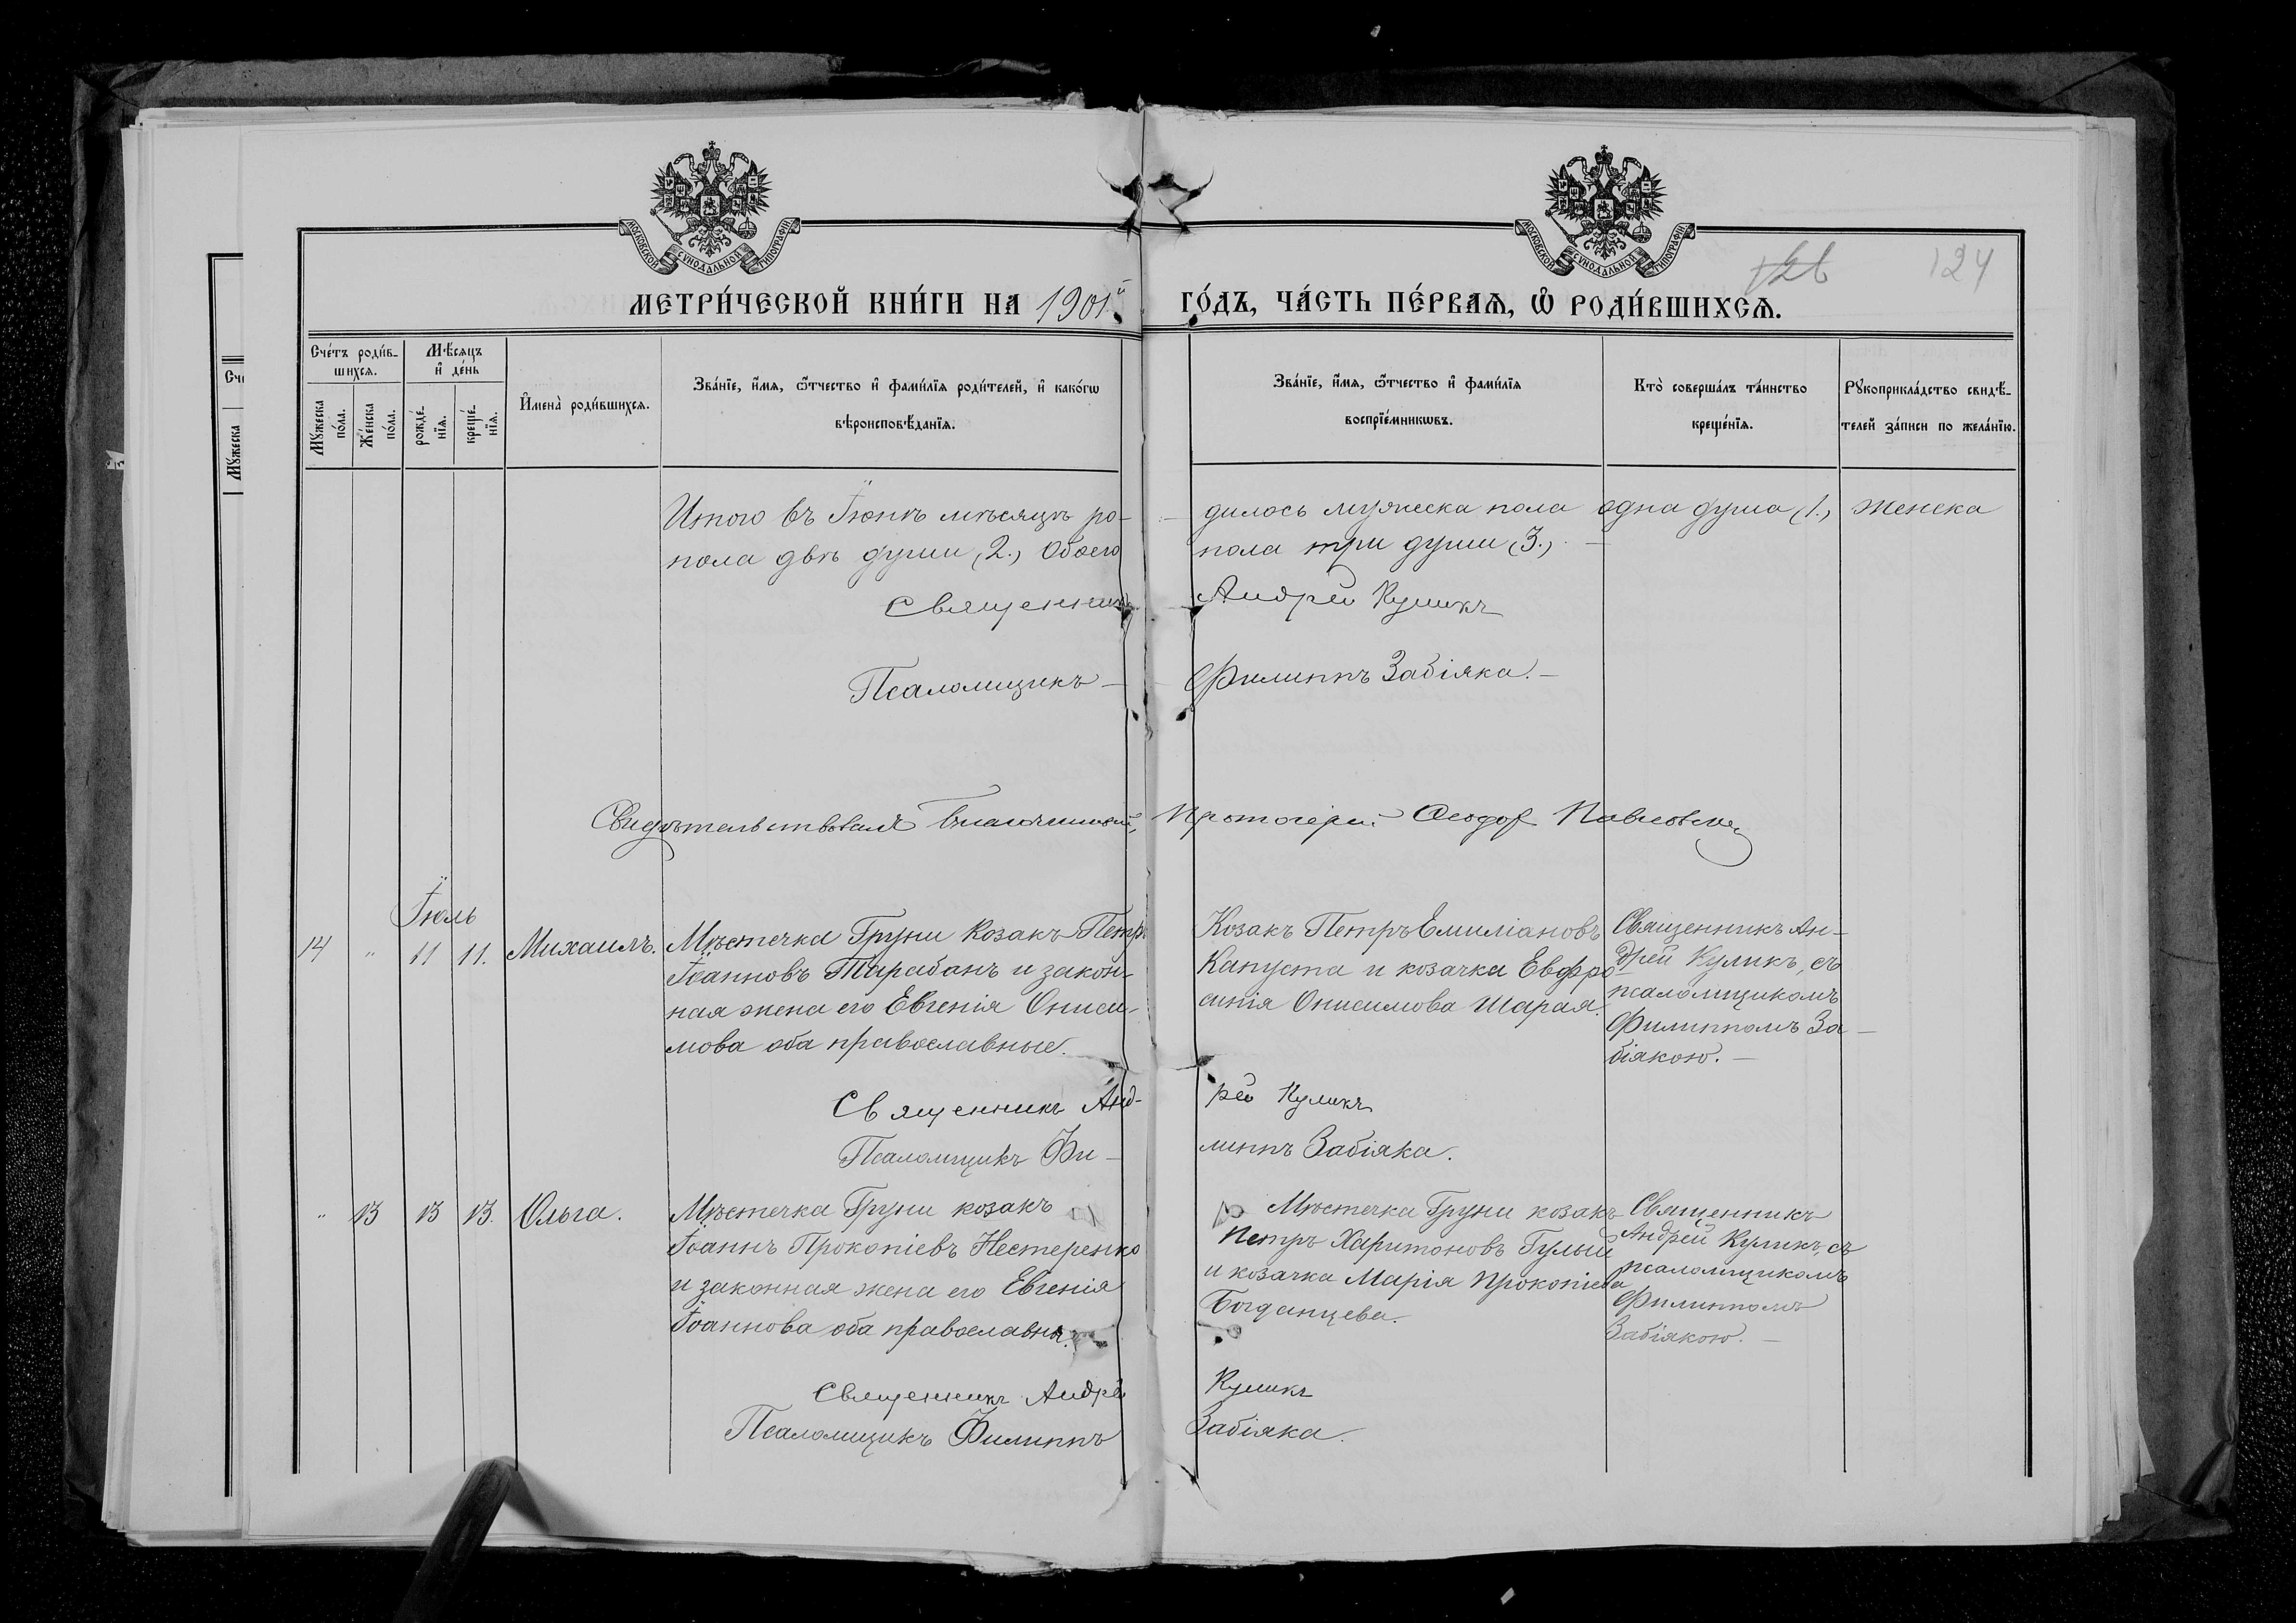 МОСКОВСКОЙ СѴНОДАЛЬНОЙ ТИПОГРАФІИ
МОСКОВСКОЙ СѴНОДАЛЬНОЙ ТИПОГРАФІИ
124
МЕТРИ́ЧЕСКОЙ КНИ́ГИ НА 1901й ГО́ДЪ, ЧА́СТЬ ПЕ́РВАѦ, Ѡ РОДИ́ВШИХСѦ.
Сче́тъ роди́в-
шихсѧ.
Мѣ́сѧцъ
и҆ де́нь
Мꙋ́жеска
по́ла.
Же́нска
по́ла.
рожде́-
нїѧ.
креще́-
нїѧ.
И҆мена̀ роди́вшихсѧ.
Зва́нїе, и҆́мѧ, ѻ҆́тчество и҆ фами́лїѧ роди́телей, и҆ како́гѡ
вѣроисповѣ́данїѧ.
Зва́нїе, и҆́мѧ, ѻ҆́тчество и҆ фами́лїѧ
воспрїе́мникѡвъ.
Кто̀ соверша́лъ та́инство
креще́нїѧ.
Рꙋкоприкла́дство свидѣ́-
телей за́писи по жела́нїю.
Сче
Мꙋ́жеска
Итого въ Іюнѣ мѣсяцѣ ро- дилось мужеска пола одна душа (1.) женска
пола двѣ души (2.) Обоего пола три души (3.) —
Священникъ Андрей Куликъ
Псаломщикъ — Филиппъ Забіяка. —
Свидѣтельствовалъ Благочинный, Протоіерей Ѳеодоръ
Іюль
14 " 11 11. Михаилъ.
Мѣстечка Груни Козакъ Петръ
Іоанновъ Тарабанъ и закон-
ная жена его Евгенія Ониси-
мова оба православные.
Козакъ Петръ Емиліановъ
Капуста и козачка Евфро-
синія Онисимова Шарая.
Священникъ Ан-
дрей Куликъ, съ
псаломщикомъ
Филиппомъ За-
біякою. —
Священникъ Анд- рей Куликъ
Псаломщикъ Фи- липпъ Забіяка.
" 13 13 13. Ольга.
Мѣстечка Груни козакъ
Іоаннъ Прокопіевъ Нестеренко
и законная жена его Евгенія
Іоаннова оба православны.
Мѣстечка Груни козакъ
Петръ Харитоновъ Гулый
и козачка Марія Прокопіева
Богданцева.
Священникъ
Андрей Куликъ, съ
псаломщикомъ
Филиппомъ
Забіякою. —
Священникъ Андрей Куликъ
Псаломщикъ Филиппъ Забіяка.